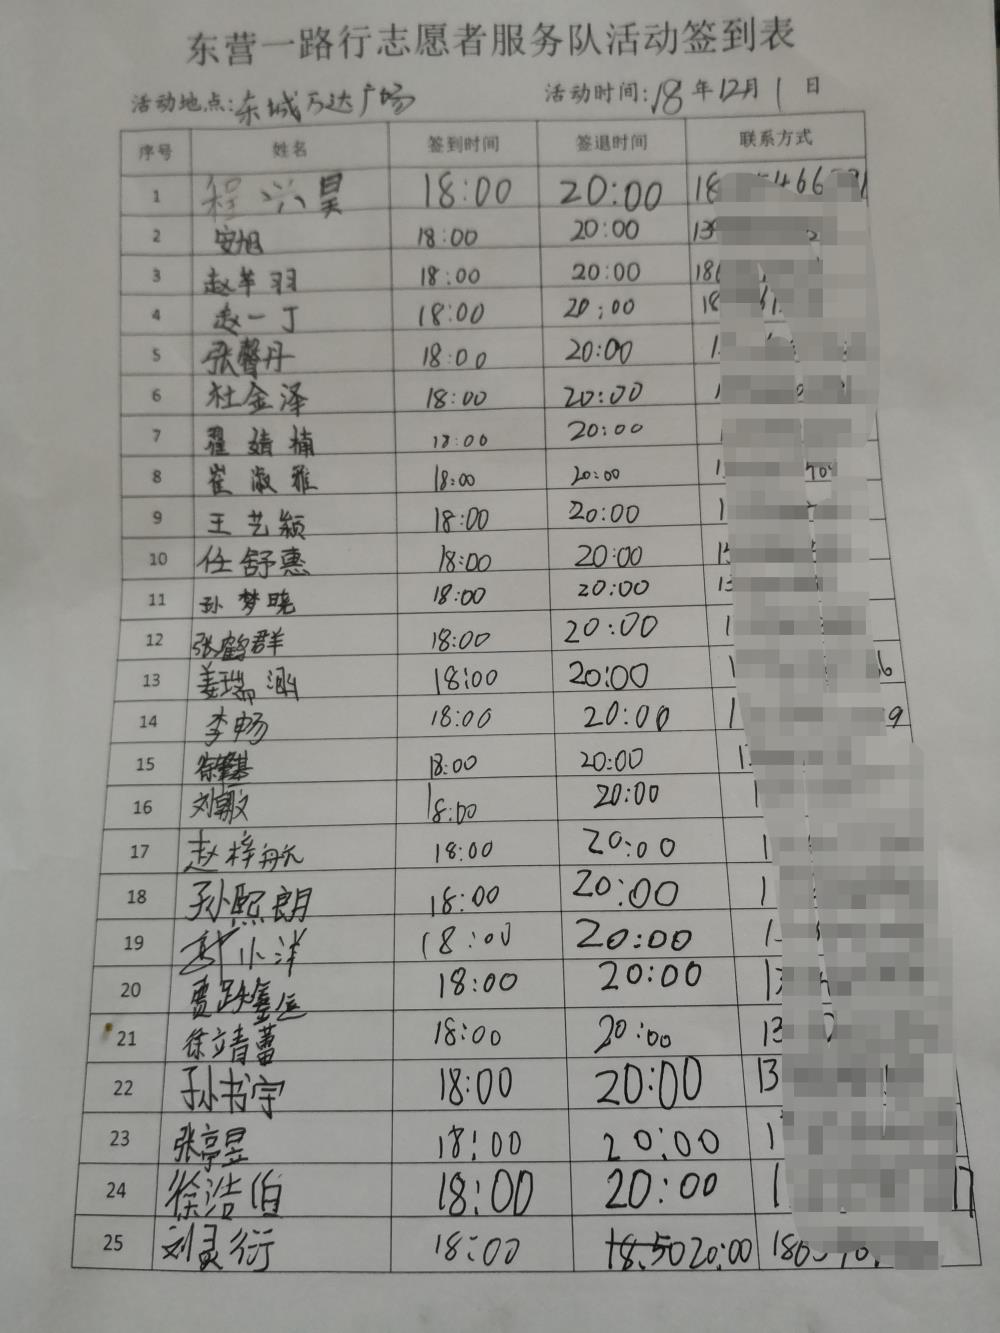 东营一路行志愿者服务队活动签到表
活动地点:东城万达广场 活动时间:18年12月1日
序号 姓名 签到时间 签退时间 联系方式
1 程兴昊 18:00 20:00 18
2 安旭 18:00 20:00 13
3 赵羊羽 18:00 20:00 18
4 赵一丁 18:00 20:00 18
5 张馨丹 18:00 20:00 1
6 杜金泽 18:00 20:00 1
7 翟婧楠 18:00 20:00
8 崔淑雅 18:00 20:00 1
9 王艺颖 18:00 20:00 1
10 任舒惠 18:00 20:00 15
11 孙梦晓 18:00 20:00 13
12 张鹤群 18:00 20:00 1
13 姜瑞涵 18:00 20:00 1 6
14 李畅 18:00 20:00 1 9
15 徐肇基 18:00 20:00 1
16 刘 18:00 20:00 1
17 赵梓航 18:00 20:00 1
18 孙熙朗 18:00 20:00 1
19 小洋 18:00 20:00 1
20 贾 18:00 20:00 1
21 徐立青蕾 18:00 20:00 13
22 孙书宇 18:00 20:00 13
23 张亭昱 18:00 20:00 1
24 徐浩伯 18:00 20:00 1
25 刘灵衍 18:00 18.50 20:00 18